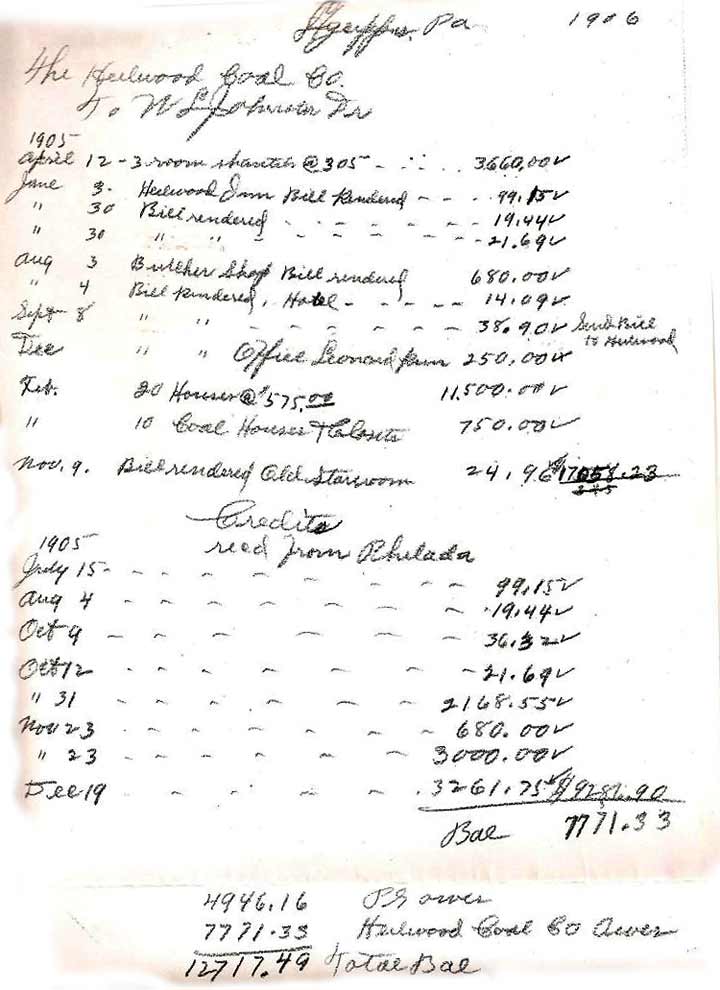 Pa 1906
The Heilwood Coal Co.
To W L Johnston Dr
1905
April 12 - 3 room shanties @ 305 - - - 3660,00 ✓
June 3. Heilwood Inn Bill Rendered - - - 99.15 ✓
" 30 Bill rendered - - - - - 19.44 ✓
" 30 " " - - - - - 21.69 ✓
Aug 3 Butcher Shop Bill rendered 680.00 ✓
" 4 Bill Rendered, Hotel - - - - 14.09 ✓
Sept 8 " " - - - - - 38.90 ✓ Send Bill to Heilwood
Dec " " Office Leonard Run 250,00 ✓
Feb. 20 Houses @ $575.00 11,500.00 ✓
" 10 Coal Houses & Closets 750.00 ✓
Nov. 9. Bill rendered Old Storeroom 24.96 ✓ $17058.23
Credits
1905 recd from Philada
July 15 - - - - - - - 99.15 ✓
Aug 4 - - - - - - - 19.44 ✓
Oct 9 - - - - - - 36.32 ✓
Oct 12 - - - - - - 21.69 ✓
" 31 - - - - - - 2168.55 ✓
Nov 23 - - - - - - - 680.00 ✓
" 23 - - - - - - 3000.00 ✓
Dec 19 - - - - - 3261.75 ✓ $9286.90
Bal 7771.33
4946.16 owes
7771.33 Heilwood Coal Co Owes
12717.49 Total Bal